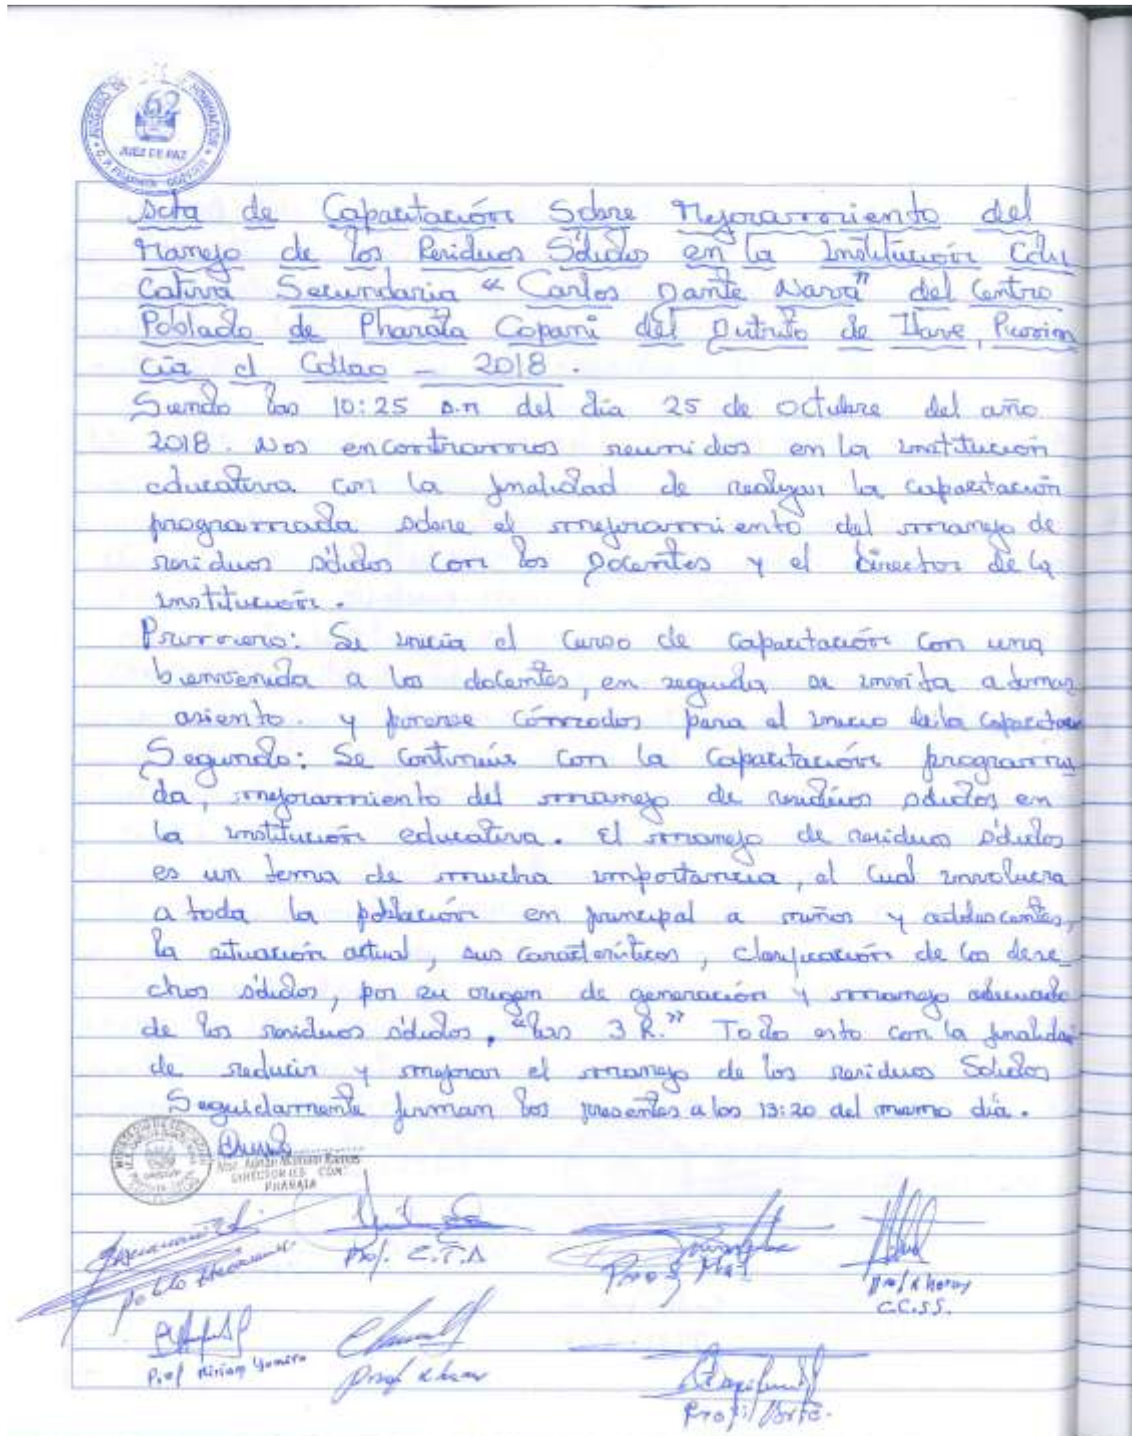 62
JUEZ DE PAZ
Acta de Capacitación Sobre Mejoramiento del
Manejo de los Residuos Sólidos en la Institución Edu
cativa Secundaria "Carlos Dante Nava" del Centro
Poblado de Pharata Copani del Distrito de Ilave, Provin
cia el Collao - 2018.
Siendo las 10:25 a.m del día 25 de octubre del año
2018. Nos encontramos reunidos en la institución
educativa con la finalidad de realizar la capacitación
programada sobre el mejoramiento del manejo de
residuos sólidos con los Docentes y el Director de la
institución.
Primero: Se inicia el Curso de Capacitación con una
bienvenida a los docentes, en seguida se invita a tomar
asiento. y ponerse cómodos para el inicio de la Capacitac
Segundo: Se continúa con la Capacitación programa
da, mejoramiento del manejo de residuos sólidos en
la institución educativa. El manejo de residuos sólidos
es un tema de mucha importancia, el cual involucra
a toda la población en principal a niños y adolescentes,
la situación actual, sus características, clasificación de los dese_
chos sólidos, por su origen de generación y manejo adecuado
de los residuos sólidos, "las 3 R." Todo esto con la finalidad
de reducir y mejorar el manejo de los residuos Solidos
Seguidamente firman los presentes a las 13:20 del mismo día.
DIRECTOR IES CDN
PHARATA
Prof. C.T.A
Prof Mat
Prof
C.C.S.S.
Prof Miriam
Prof
Prof. Arte.